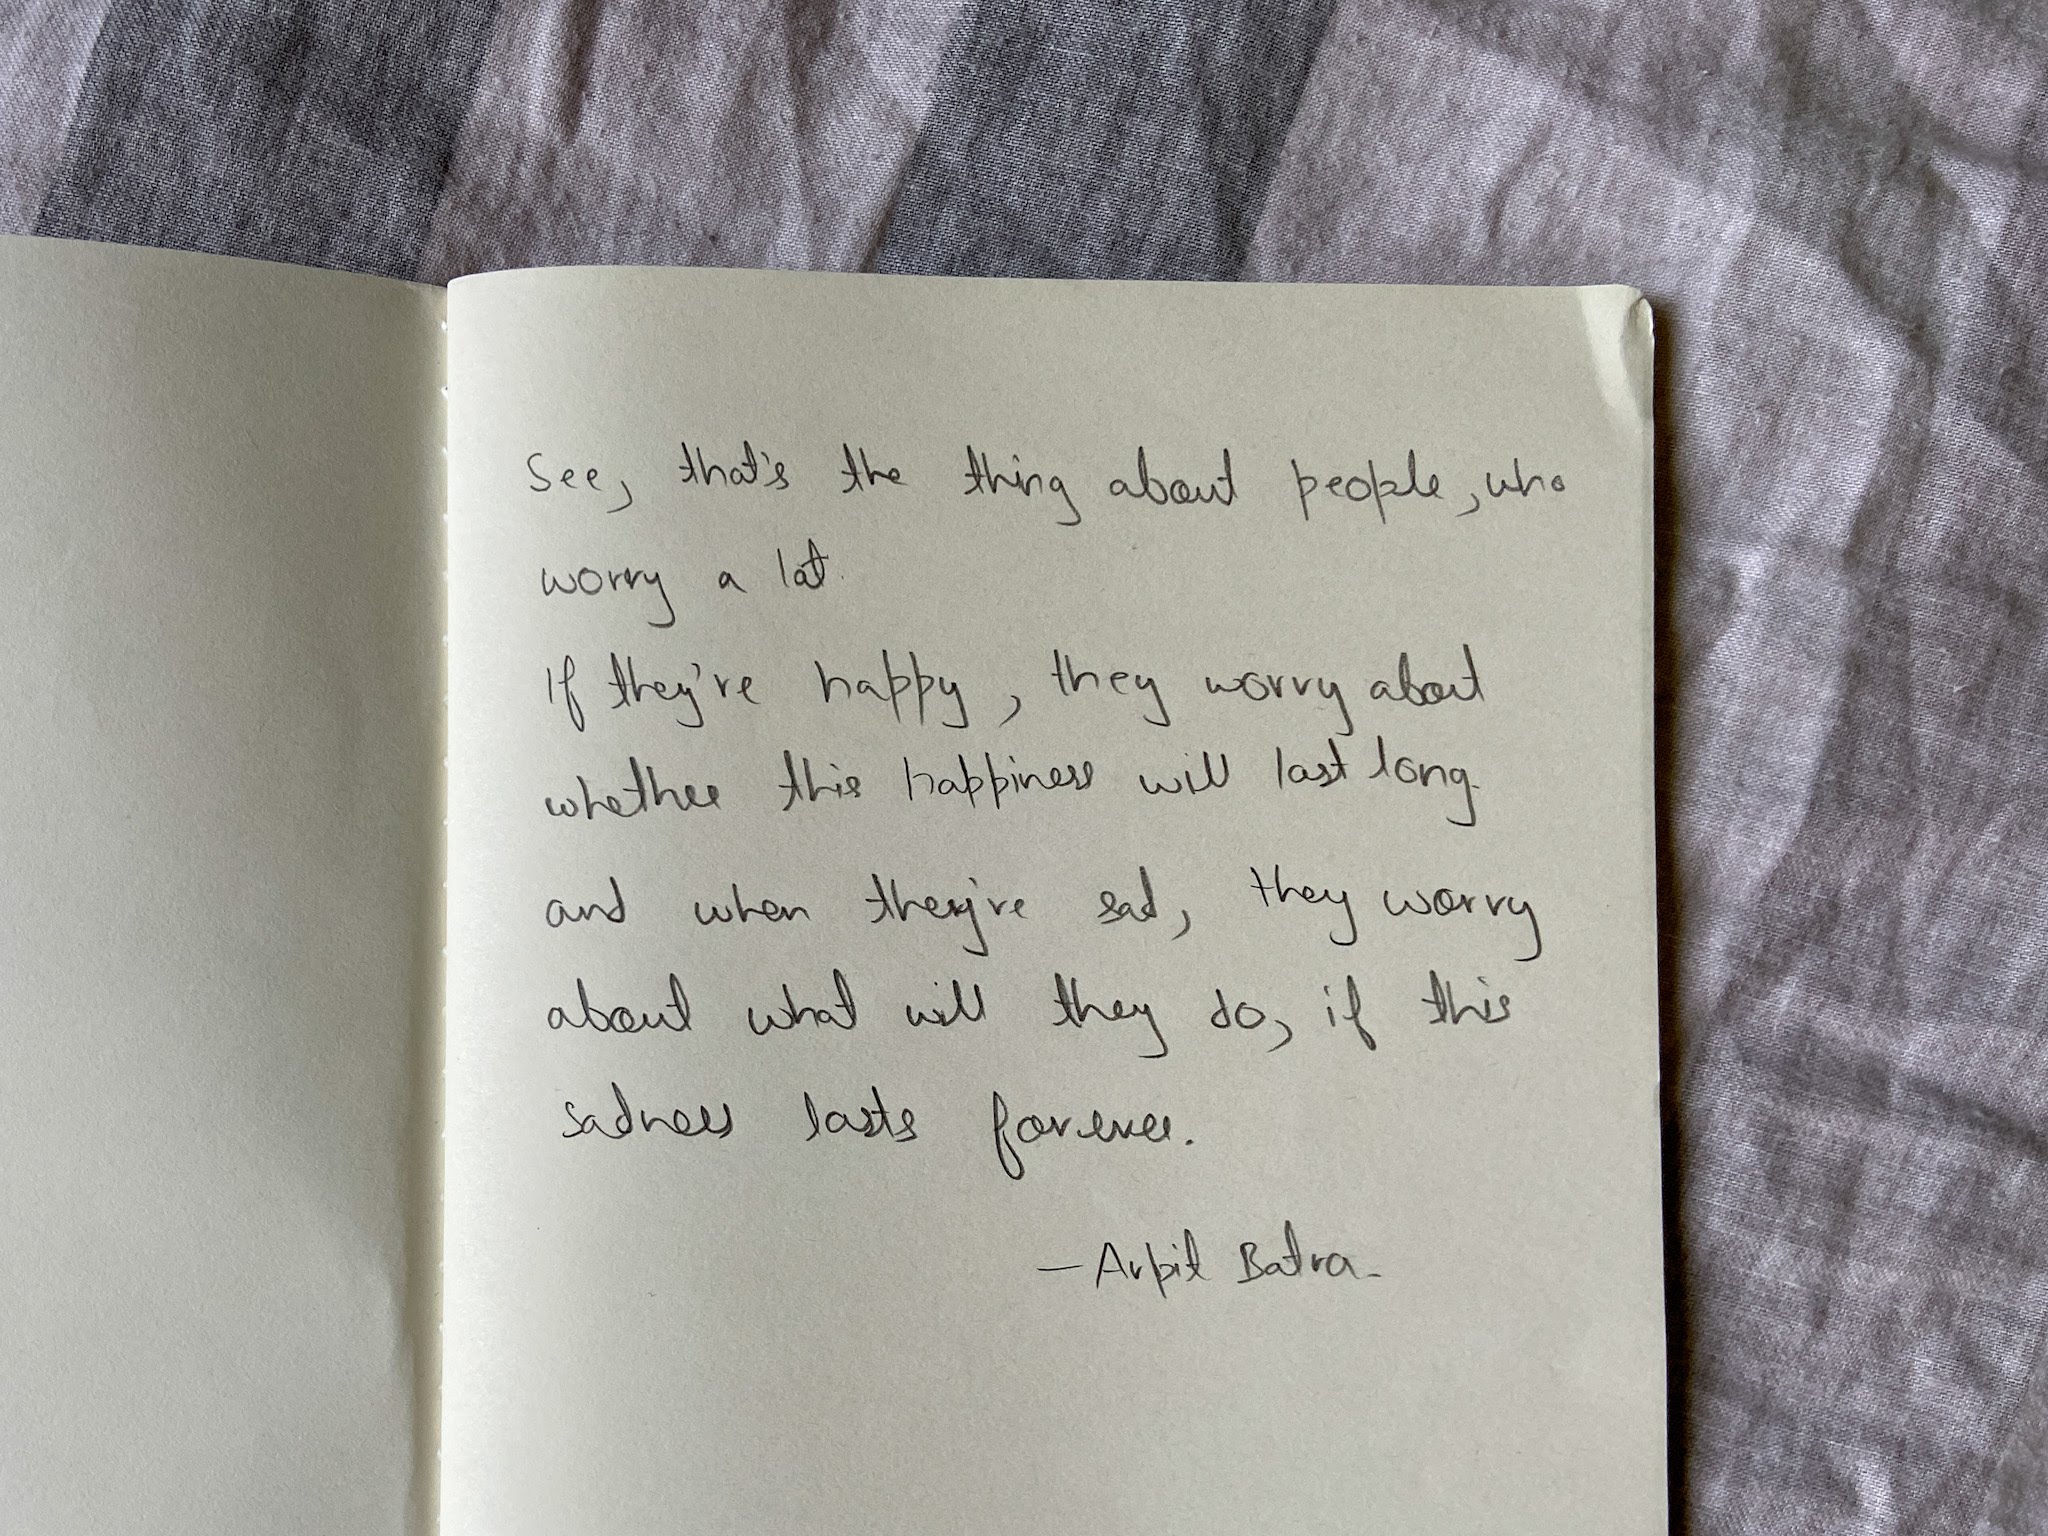 See, that's the thing about people, who
worry a lot.
If they're happy, they worry about
whether this happiness will last long.
and when they're sad, they worry
about what will they do, if this
sadness lasts forever.
— Arpit Batra.